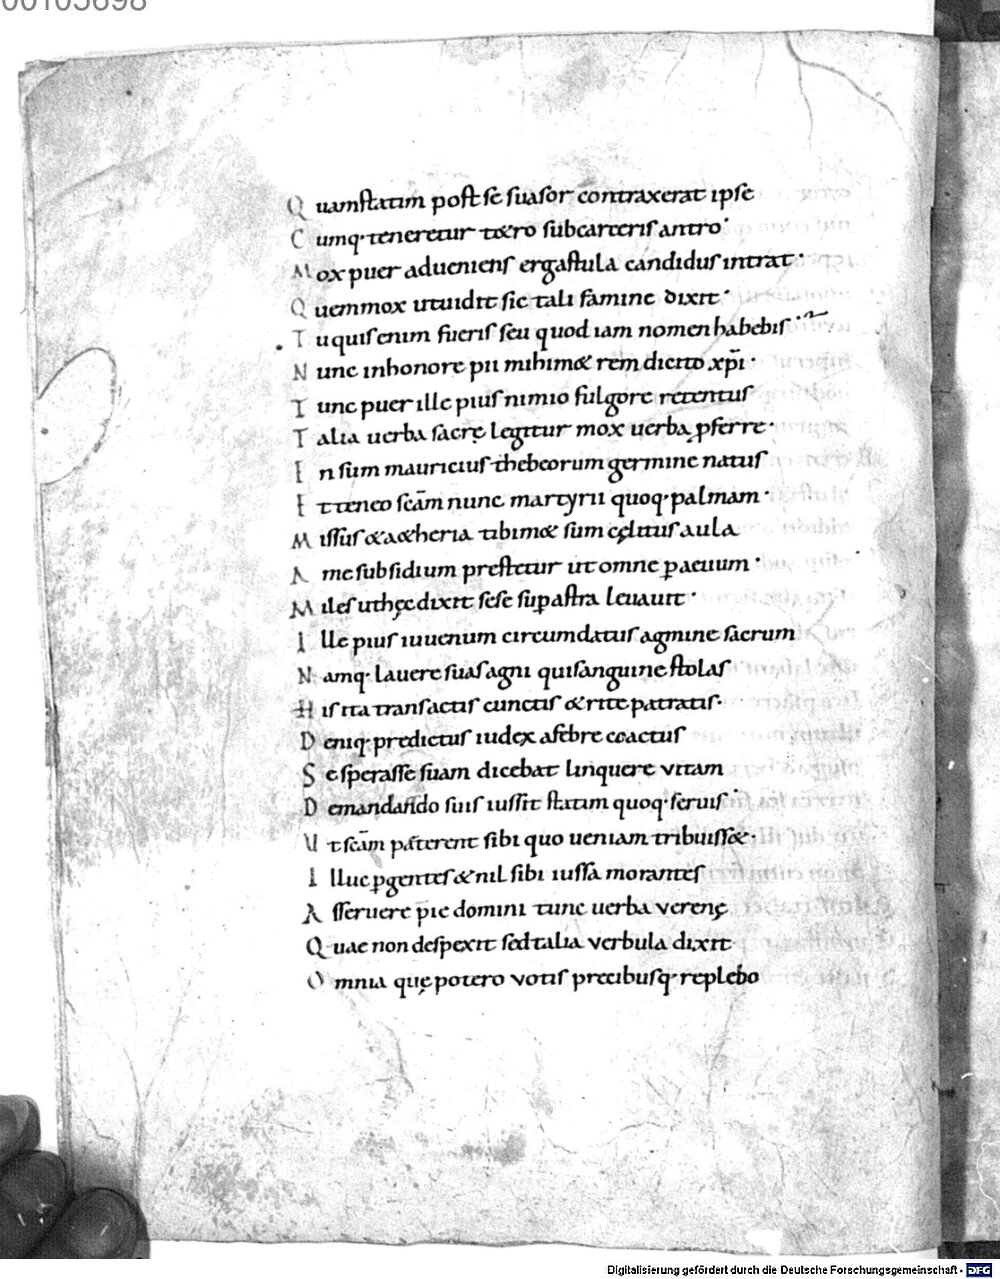 00105698
Quamstatim post se suasor contraxerat ipse
Cumq· teneretur tetro sub carceris antro·
Mox puer adueniens ergastula candidus intrat·
Quem mox ut uidit sic tali famine dixit·
Tu quis enim fueris seu quod iam nomen habebis·
Nunc in honore pii mihimet rem dicito xp̄i·
Tunc puer ille pius nimio fulgore retentus
Talia uerba sacrę legitur mox uerba ꝓferre·
En sum mauricius thebeorum germine natus
Et teneo sc̄am nunc martyrii quoq· palmam·
Missus et aetheria tibimet sum cęlitus aula
A me subsidium prestetur ut omne ꝑ aeuum·
Miles ut hęc dixit sese suꝑ astra leuauit·
Ille pius iuuenum circumdatus agmine sacrum
Namq· lauere suas agni qui sanguine stolas
His ita transactis cunctis et rite patratis·
Deniq· predictus iudex a febre coactus
Se sperasse suam dicebat linquere vitam
Demandando suis iussit statim quoq· seruis·
Ut sc̄am paterent sibi quo ueniam tribuisset·
Illuc ꝑgentes et nil sibi iussa morantes
Asseruere pie domini tunc uerba verenę
Quae non despexit sed talia verbula dixit
Omnia quę potero votis precibusq· replebo
Digitalisierung gefördert durch die Deutsche Forschungsgemeinschaft - DFG